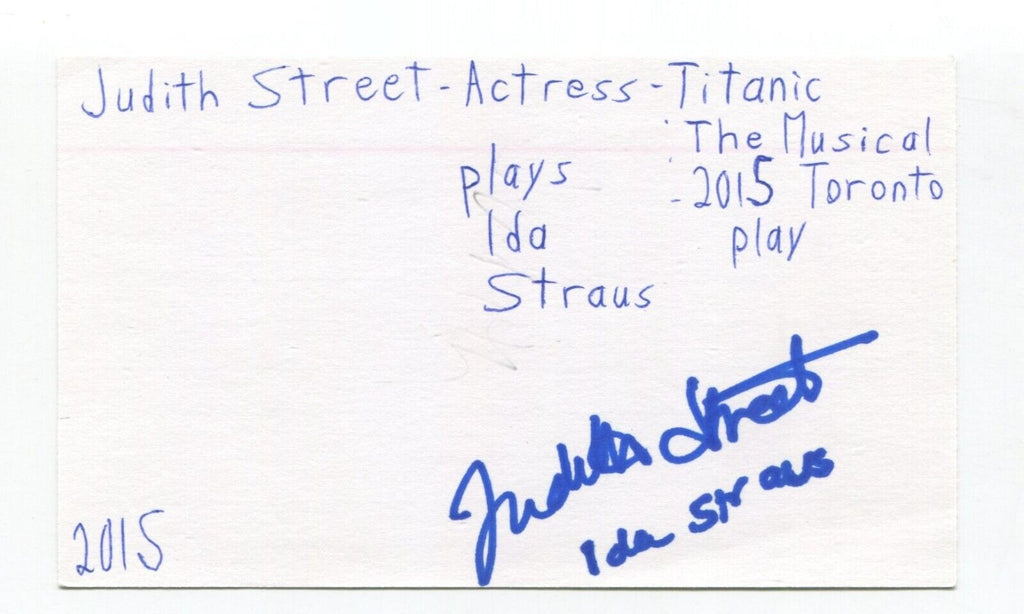 Judith Street - Actress - Titanic
: The Musical
plays - 2015 Toronto
Ida play
Straus
Judith Street
Ida Straus
2015